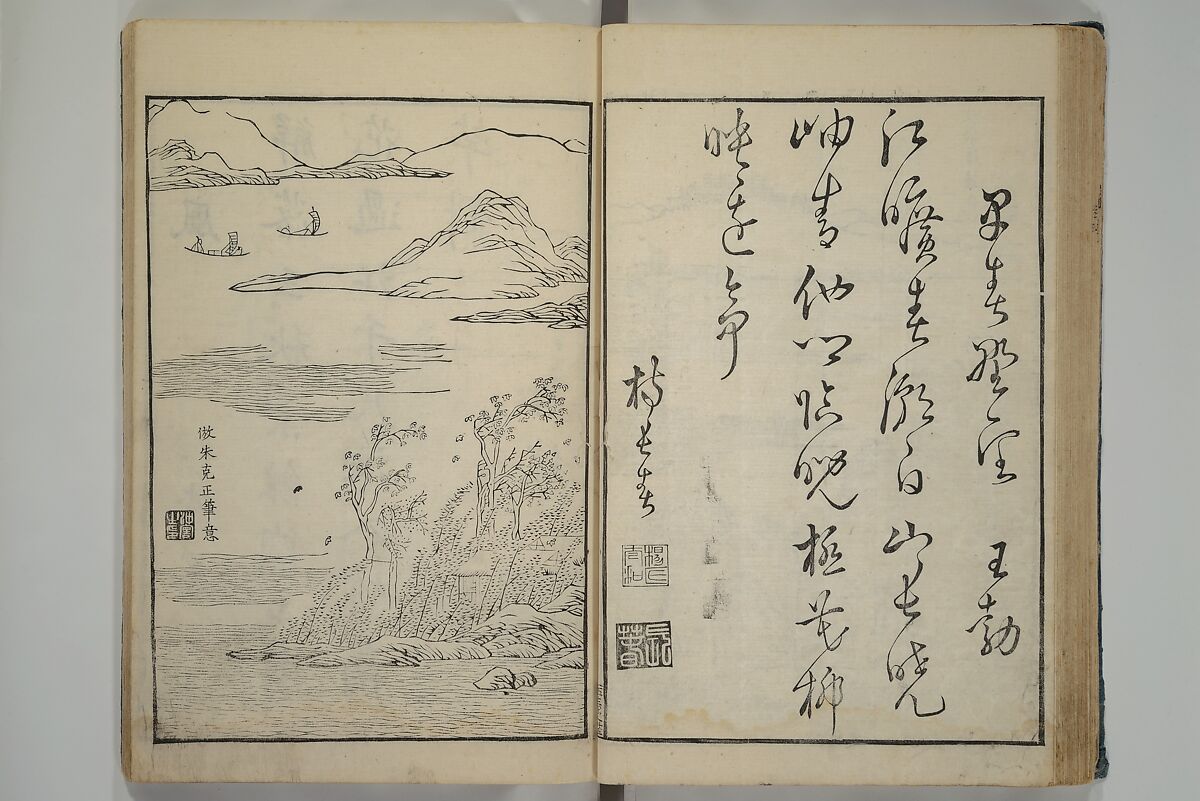 早春野望 王勃
江曠春潮白山長曉
岫青他鄉臨睨極花柳
映邊亭
楊長春
長春
倣朱克正筆意